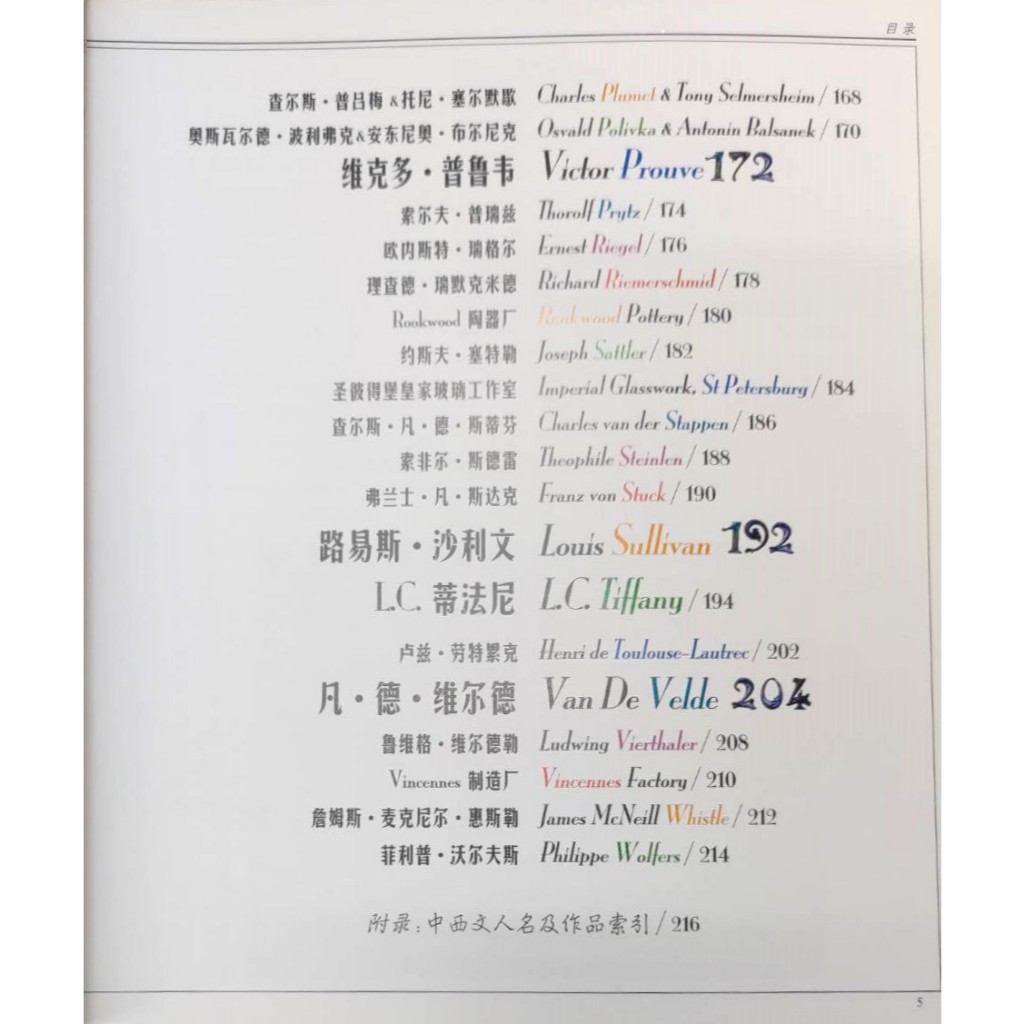 目录
查尔斯·普吕梅&托尼·塞尔默歇 Charles Plumet & Tony Selmersheim / 168
奥斯瓦尔德·波利弗克&安东尼奥·布尔尼克 Osvald Polivka & Antonin Balsanek / 170
维克多·普鲁韦 Victor Prouve 172
索尔夫·普瑞兹 Thorolf Prytz / 174
欧内斯特·瑞格尔 Ernest Riegel / 176
理查德·瑞默克米德 Richard Riemerschmid / 178
Rookwood 陶器厂 Rookwood Pottery / 180
约斯夫·塞特勒 Joseph Sattler / 182
圣彼得堡皇家玻璃工作室 Imperial Glasswork, St Petersburg / 184
查尔斯·凡·德·斯蒂芬 Charles van der Stappen / 186
索非尔·斯德雷 Theophile Steinlen / 188
弗兰士·凡·斯达克 Franz von Stuck / 190
路易斯·沙利文 Louis Sullivan 192
L.C. 蒂法尼 L.C. Tiffany / 194
卢兹·劳特累克 Henri de Toulouse-Lautrec / 202
凡·德·维尔德 Van De Velde 204
鲁维格·维尔德勒 Ludwing Vierthaler / 208
Vincennes 制造厂 Vincennes Factory / 210
詹姆斯·麦克尼尔·惠斯勒 James McNeill Whistle / 212
菲利普·沃尔夫斯 Philippe Wolfers / 214
附录:中西文人名及作品索引 / 216
5